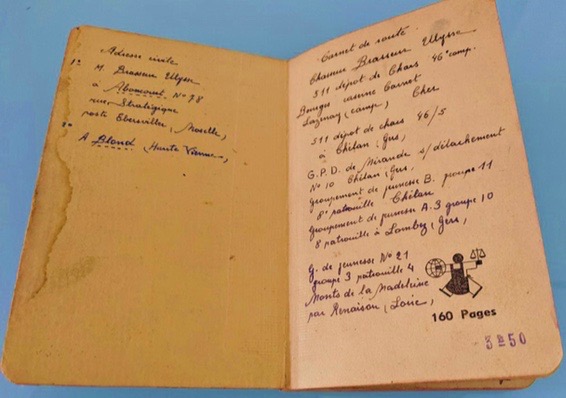 Adresse civile
1° M. Brasseur Ulysse
à Abamcourt N° 78
rue Stratégique
poste Ebersviller (Moselle)
2° A Blond Haute Vienne,
Carnet de route
Chasseur Brasseur Ulysse
511 dépot de Chars 46° comp.
Bourges caserne Carnot
Laznay (camp) Cher
511 dépot de chars 46/5
à Chélan (Gers,
G.P.D. de Mirande s/détachement
N° 10 Chélan (Gers,
Groupement de jeunesse B. groupe 11
8° patrouille Chélan
Groupement de jeunesse A.3 groupe 10
8 patrouille à Lombez (Gers,
G. de jeunesse N° 21
groupe 3 patrouille 4
Monts de la Madeleine
par Renaison (Loire,
160 Pages
3 50